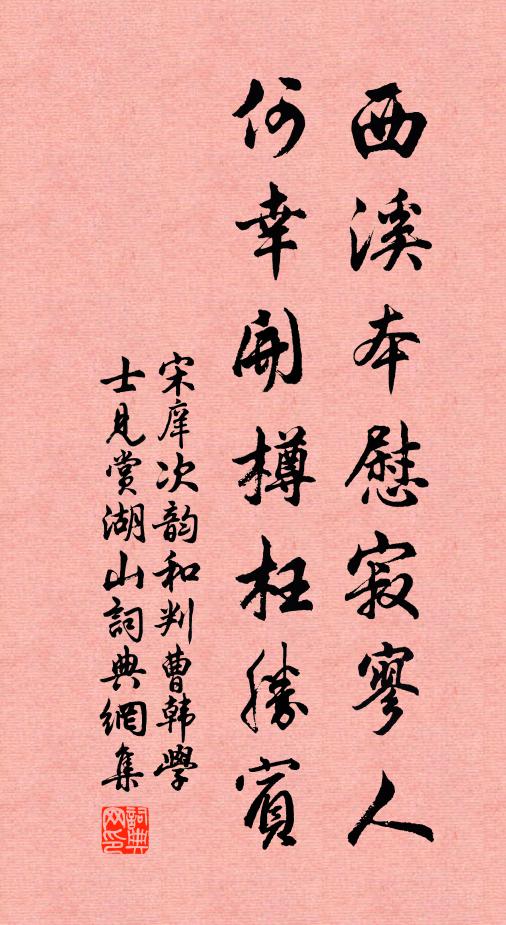 西溪本慰寂寥人
何幸開樽枉勝賓
宋庠次韵和判曹韩學
士見賞湖山詞典網集
詞典
网印